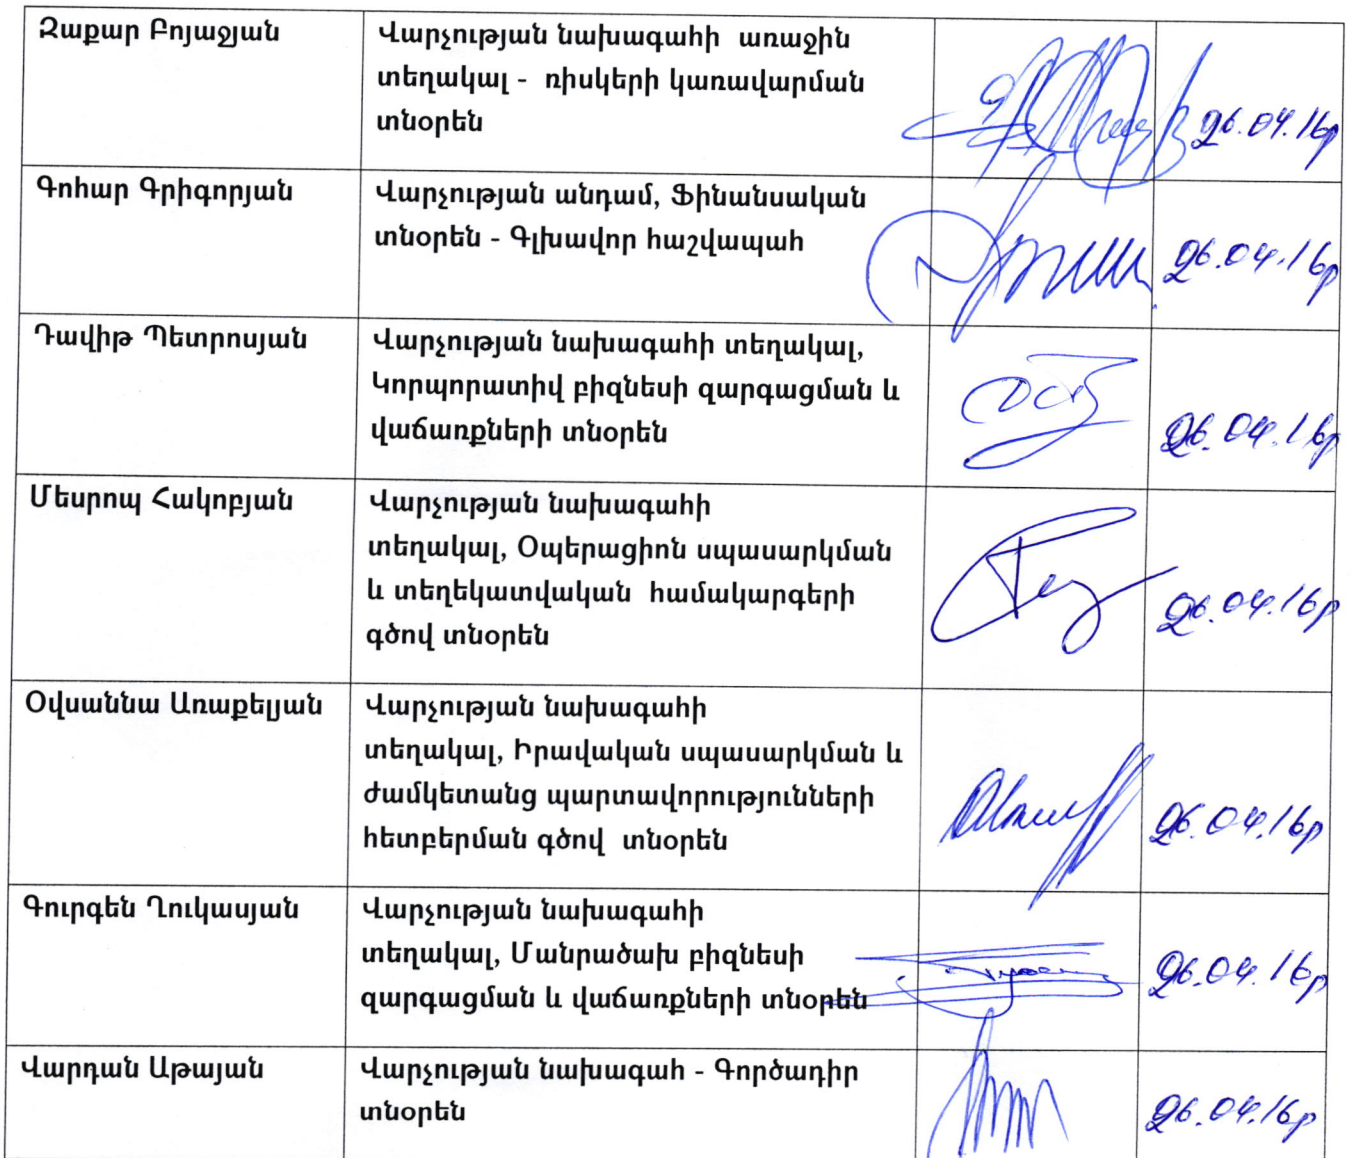 Զաքար Բոյաջյան
Վարչության նախագահի առաջին
տեղակալ - ռիսկերի կառավարման
տնօրեն
26.04.16թ
Գոհար Գրիգորյան
Վարչության անդամ, Ֆինանսական
տնօրեն - Գլխավոր հաշվապահ
26.04.16թ
Դավիթ Պետրոսյան
Վարչության նախագահի տեղակալ,
Կորպորատիվ բիզնեսի զարգացման և
վաճառքների տնօրեն
26.04.16թ
Մեսրոպ Հակոբյան
Վարչության նախագահի
տեղակալ, Օպերացիոն սպասարկման
և տեղեկատվական համակարգերի
գծով տնօրեն
26.04.16թ
Օվսաննա Առաքելյան
Վարչության նախագահի
տեղակալ, Իրավական սպասարկման և
ժամկետանց պարտավորությունների
հետբերման գծով տնօրեն
26.04.16թ
Գուրգեն Ղուկասյան
Վարչության նախագահի
տեղակալ, Մանրածախ բիզնեսի
զարգացման և վաճառքների տնօրեն
26.04.16թ
Վարդան Աթայան
Վարչության նախագահ - Գործադիր
տնօրեն
26.04.16թ